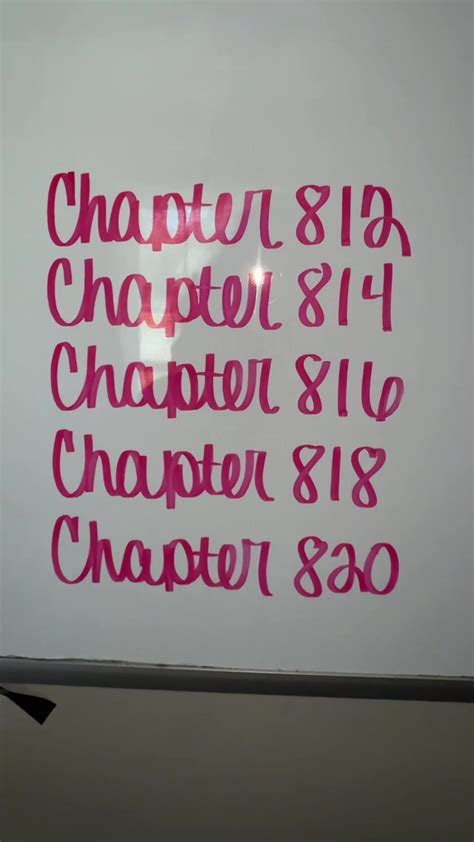 Chapter 812
Chapter 814
Chapter 816
Chapter 818
Chapter 820